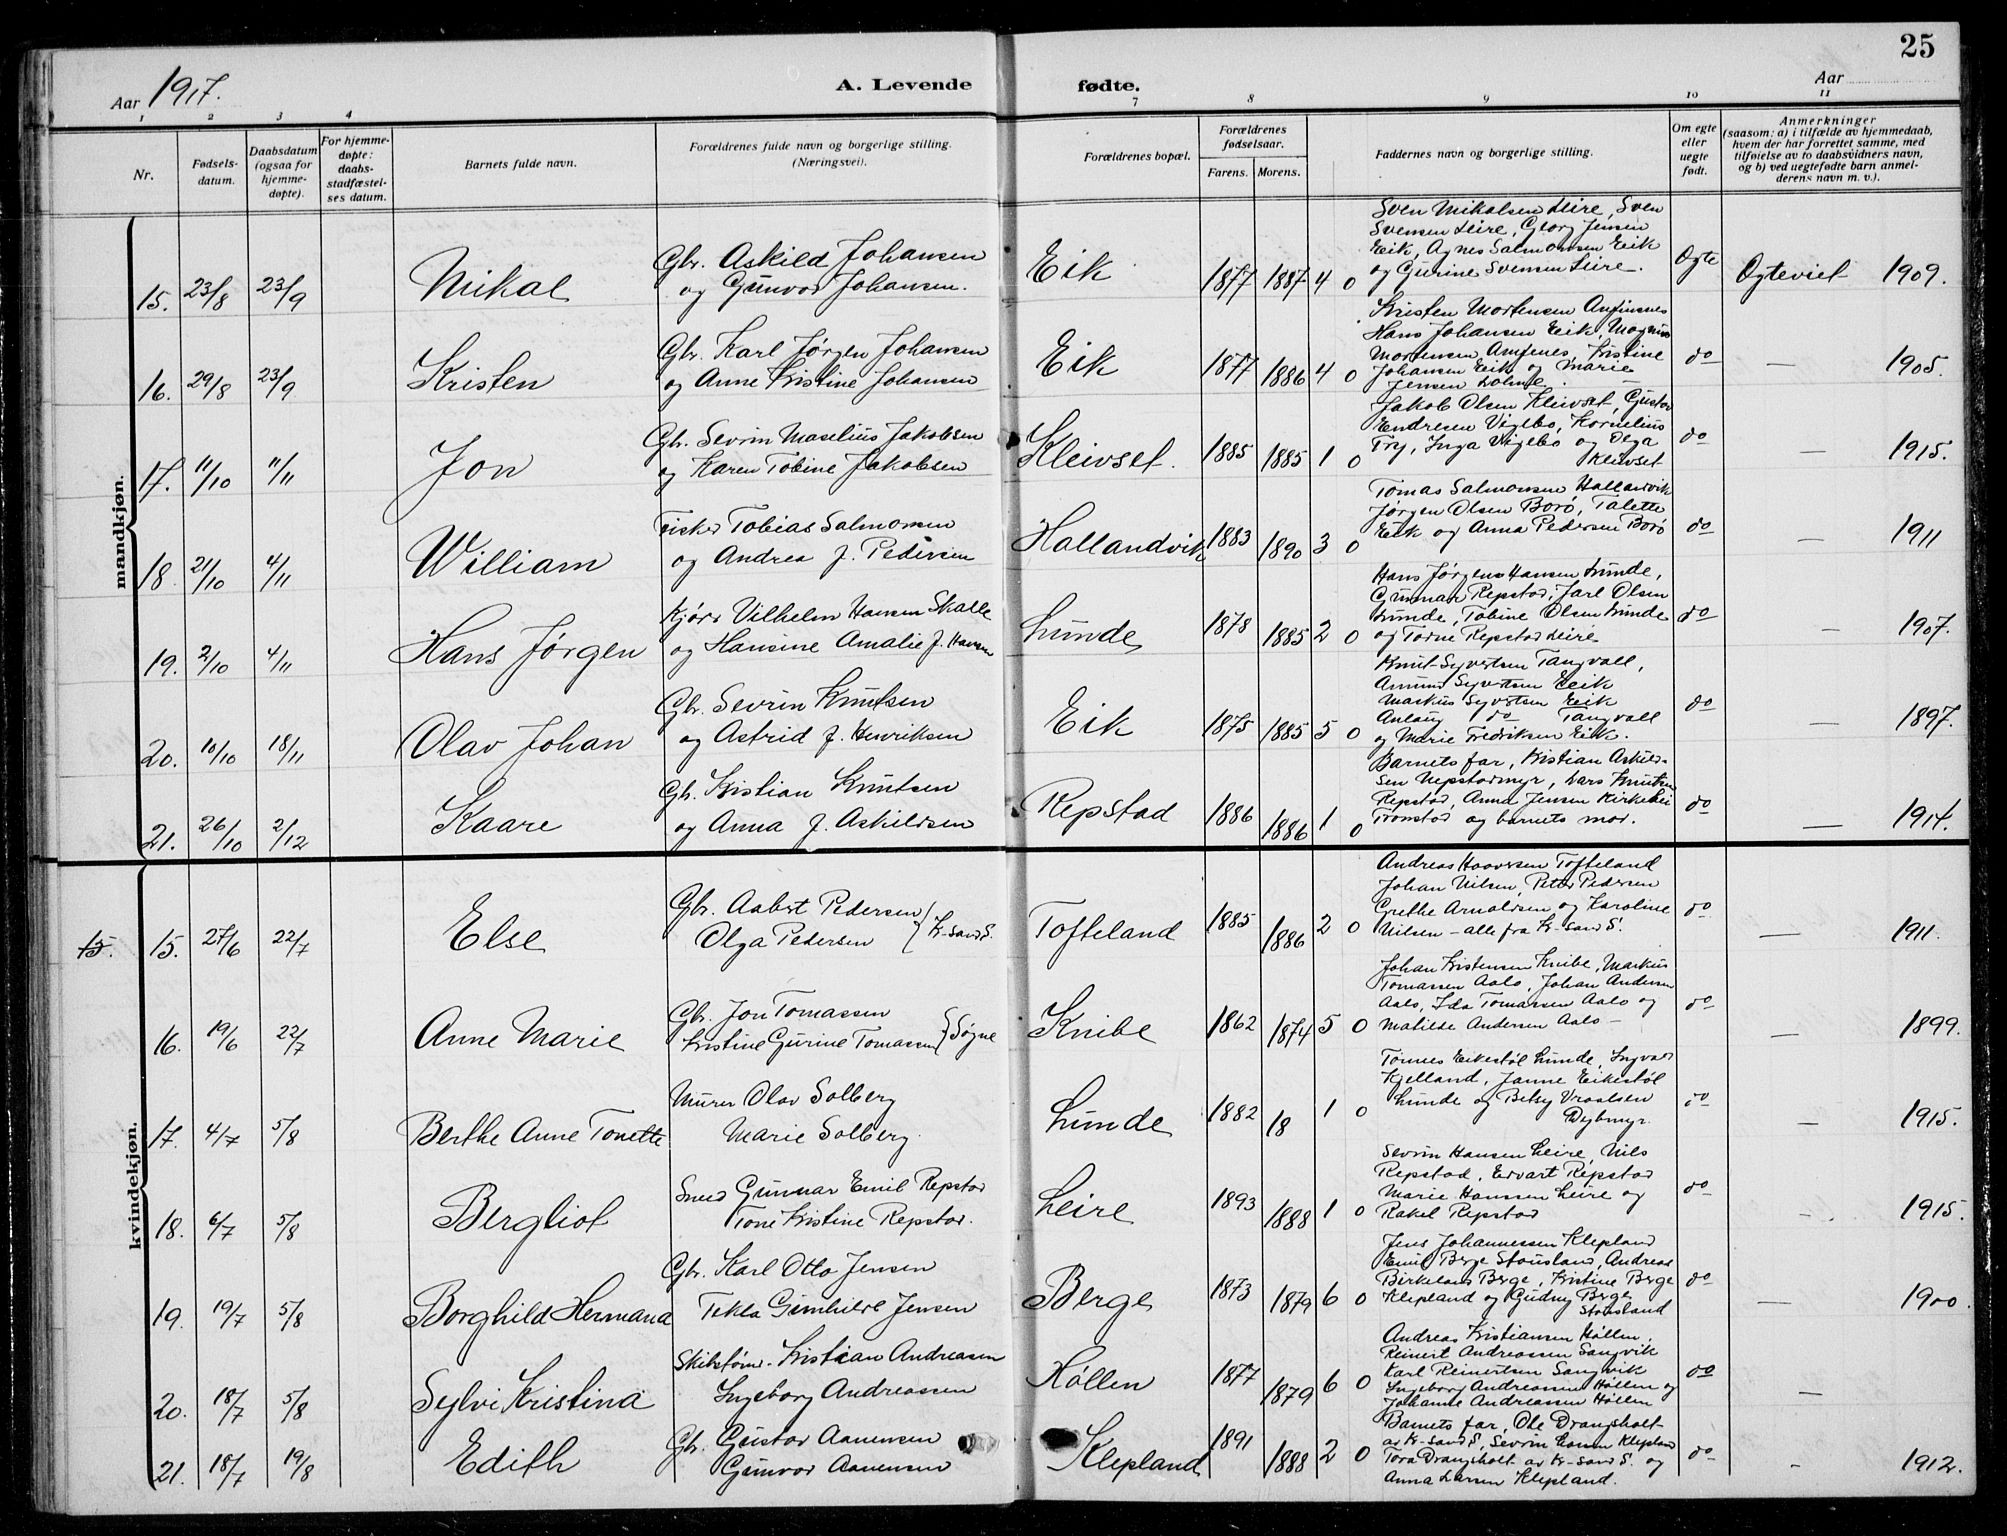 25
Aar 1917.
A. Levende fødte.
Aar
1 2 3 4 7 8 9 10 11
Nr.
Fødsels-
datum.
Daabsdatum
(ogsaa for
hjemme-
døpte).
For hjemme-
døpte:
daabs-
stadfæstel-
ses datum.
Barnets fulde navn.
Forældrenes fulde navn og borgerlige stilling.
(Næringsvei).
Forældrenes bopæl.
Forældrenes
fødselsaar.
Farens. Morens.
Faddernes navn og borgerlige stilling.
Om egte
eller
uegte
født.
Anmerkninger
(saasom: a) i tilfælde av hjemmedaab,
hvem der har forrettet samme, med
tilføielse av to daabsvidners navn,
og b) ved uegtefødte barn anmel-
derens navn m. v.).
mandkjøn.
15. 23/8 23/9 Nikal
Gbr. Askild Johansen
og Gunvor Johansen.
Eik 1877 1887 4 0
Sven Nikalsen Leire, Sven
Svensen Leire, Georg Jensen
Eik, Agnes Salmonsen Eik
og Gurine Svensen Leire.
Egte Egteviet 1909.
16. 29/8 23/9 Kristen
Gbr. Karl Jørgen Johansen
og Anne Kristine Johansen
Eik 1877 1886 4 0
Kristen Mortensen Amfinnes
Hans Johansen Eik Magnus
Mortensen Amfenes, Kristine
Johansen Eik og Marie
Jensen
do — 1905.
17. 11/10 11/11 Jon
Gbr. Sevrin Maselius Jakobsen
og Karen Tobine Jakobsen
Kleivset. 1885 1885 1 0
Jakob Olsen Kleivset, Gustav
Endresen Vigebo, Kornelius
Try, Inga Vigebo og Olga
Kleivset
do — 1915.
18. 21/10 4/11 William
Fisker Tobias Salmonsen
og Andrea f. Pedersen
Hallandvik 1883 1890 3 0
Tomas Salmonsen Hallandvik
Jørgen Olsen Borø, Talette
Eik og Anna Pedersen Borø
do — 1911
19. 2/10 4/11 Hans Jørgen
Kjørs Vilhelm Hansen Skalle
og Hansine Amalie f. Hansen
Lunde 1878 1885 2 0
Hans Jørgens Hansen Lunde,
Gunnar Repstad, Jarl Olsen
Lunde, Tobine Olsen Lunde
og Torne Repstad Leire
do — 1907.
20. 10/10 18/11 Olav Johan
Gbr. Sevrin Knutsen
og Astrid f. Henriksen
Eik 1875 1885 5 0
Knut Syvertsen Tangvall,
Amund Syvertsen Eik
Markus Syvertsen Eik
Anlaug do Tangvall
og Marie Fredriksen Eik.
do — 1897.
21. 26/10 2/12 Kaare
Gb. Kristian Knutsen
og Anna f. Askildsen
Repstad 1886 1886 1 0
Barnets far, Kristian Askild-
sen Repstadmyr, Lars Knutsen
Repstad, Anna Jensen Kirkehei
Tronstad og barnets mor.
do — 1914.
kvindekjøn.
15. 15. 27/6 22/7 Else
Gbr. Aabert Pedersen
Olga Pedersen } K-sand S.
Tofteland 1885 1886 2 0
Andreas Haaversen Tofteland
Johan Nilsen, Peter Pedersen
Grethe Arnoldsen og Karoline
Nilsen – alle fra K-sand S.
do — 1911.
16. 19/6 22/7 Anne Marie
Gb. Jon Tomassen
Kristine Gurine Tomassen } Søgne
Knibe 1862 1874 5 0
Johan Kristensen Knibe, Markus
Tomassen Aalo, Johan Andersen
Aalo, Ida Tomassen Aalo og
Matilde Andersen Aalo –
do — 1899.
17. 4/7 5/8 Berthe Anne Tonette
Murer Olav Solberg
Marie Solberg.
Lunde 1882 18 1 0
Tønnes Eikestøl Lunde, Ingvald
Kjelland, Janne Eikestøl
Lunde og Betsy Vraalsen
Dybmyr.
do — 1915.
18. 6/7 5/8 Bergliot
Smed Gunnar Emil Repstad
Tone Kristine Repstad.
Leire 1893 1888 1 0
Sevrin Hansen Leire, Nils
Repstad, Edvart Repstad
Marie Hanssen Leire og
Rakel Repstad
do — 1915.
19. 19/7 5/8 Borghild Hermana
Gbr. Karl Otto Jensen
Tekla Gunhilde Jensen
Berge 1873 1879 6 0
Jens Johannessen Klepland
Emil Berge Stausland, Andreas
Birkeland Berge, Kristine Berge
Klepland og Gudny Berge
Stausland
do — 1900.
20. 18/7 5/8 Sylvi Kristina
Skibstøm. Kristian Andreasen
Ingeborg Andreassen
Høllen 1877 1879 6 0
Andreas Kristiansen Høllen,
Reinert Andreassen Sangvik
Karl Reinertsen Sangvik
Ingeborg Andreassen Høllen og
Johanne Andreassen Høllen
do —
21. 18/7 19/8 Edith
Gb. Gustav Aanensen
Gunvor Aanensen
Klepland 1891 1888 2 0
Barnets far, Ole Drangsholt
av K-sand S, Sevrin Larsen Klepland
Tora Drangsholt av K-sand S. og
Anna Larsen Klepland.
do - 1912.